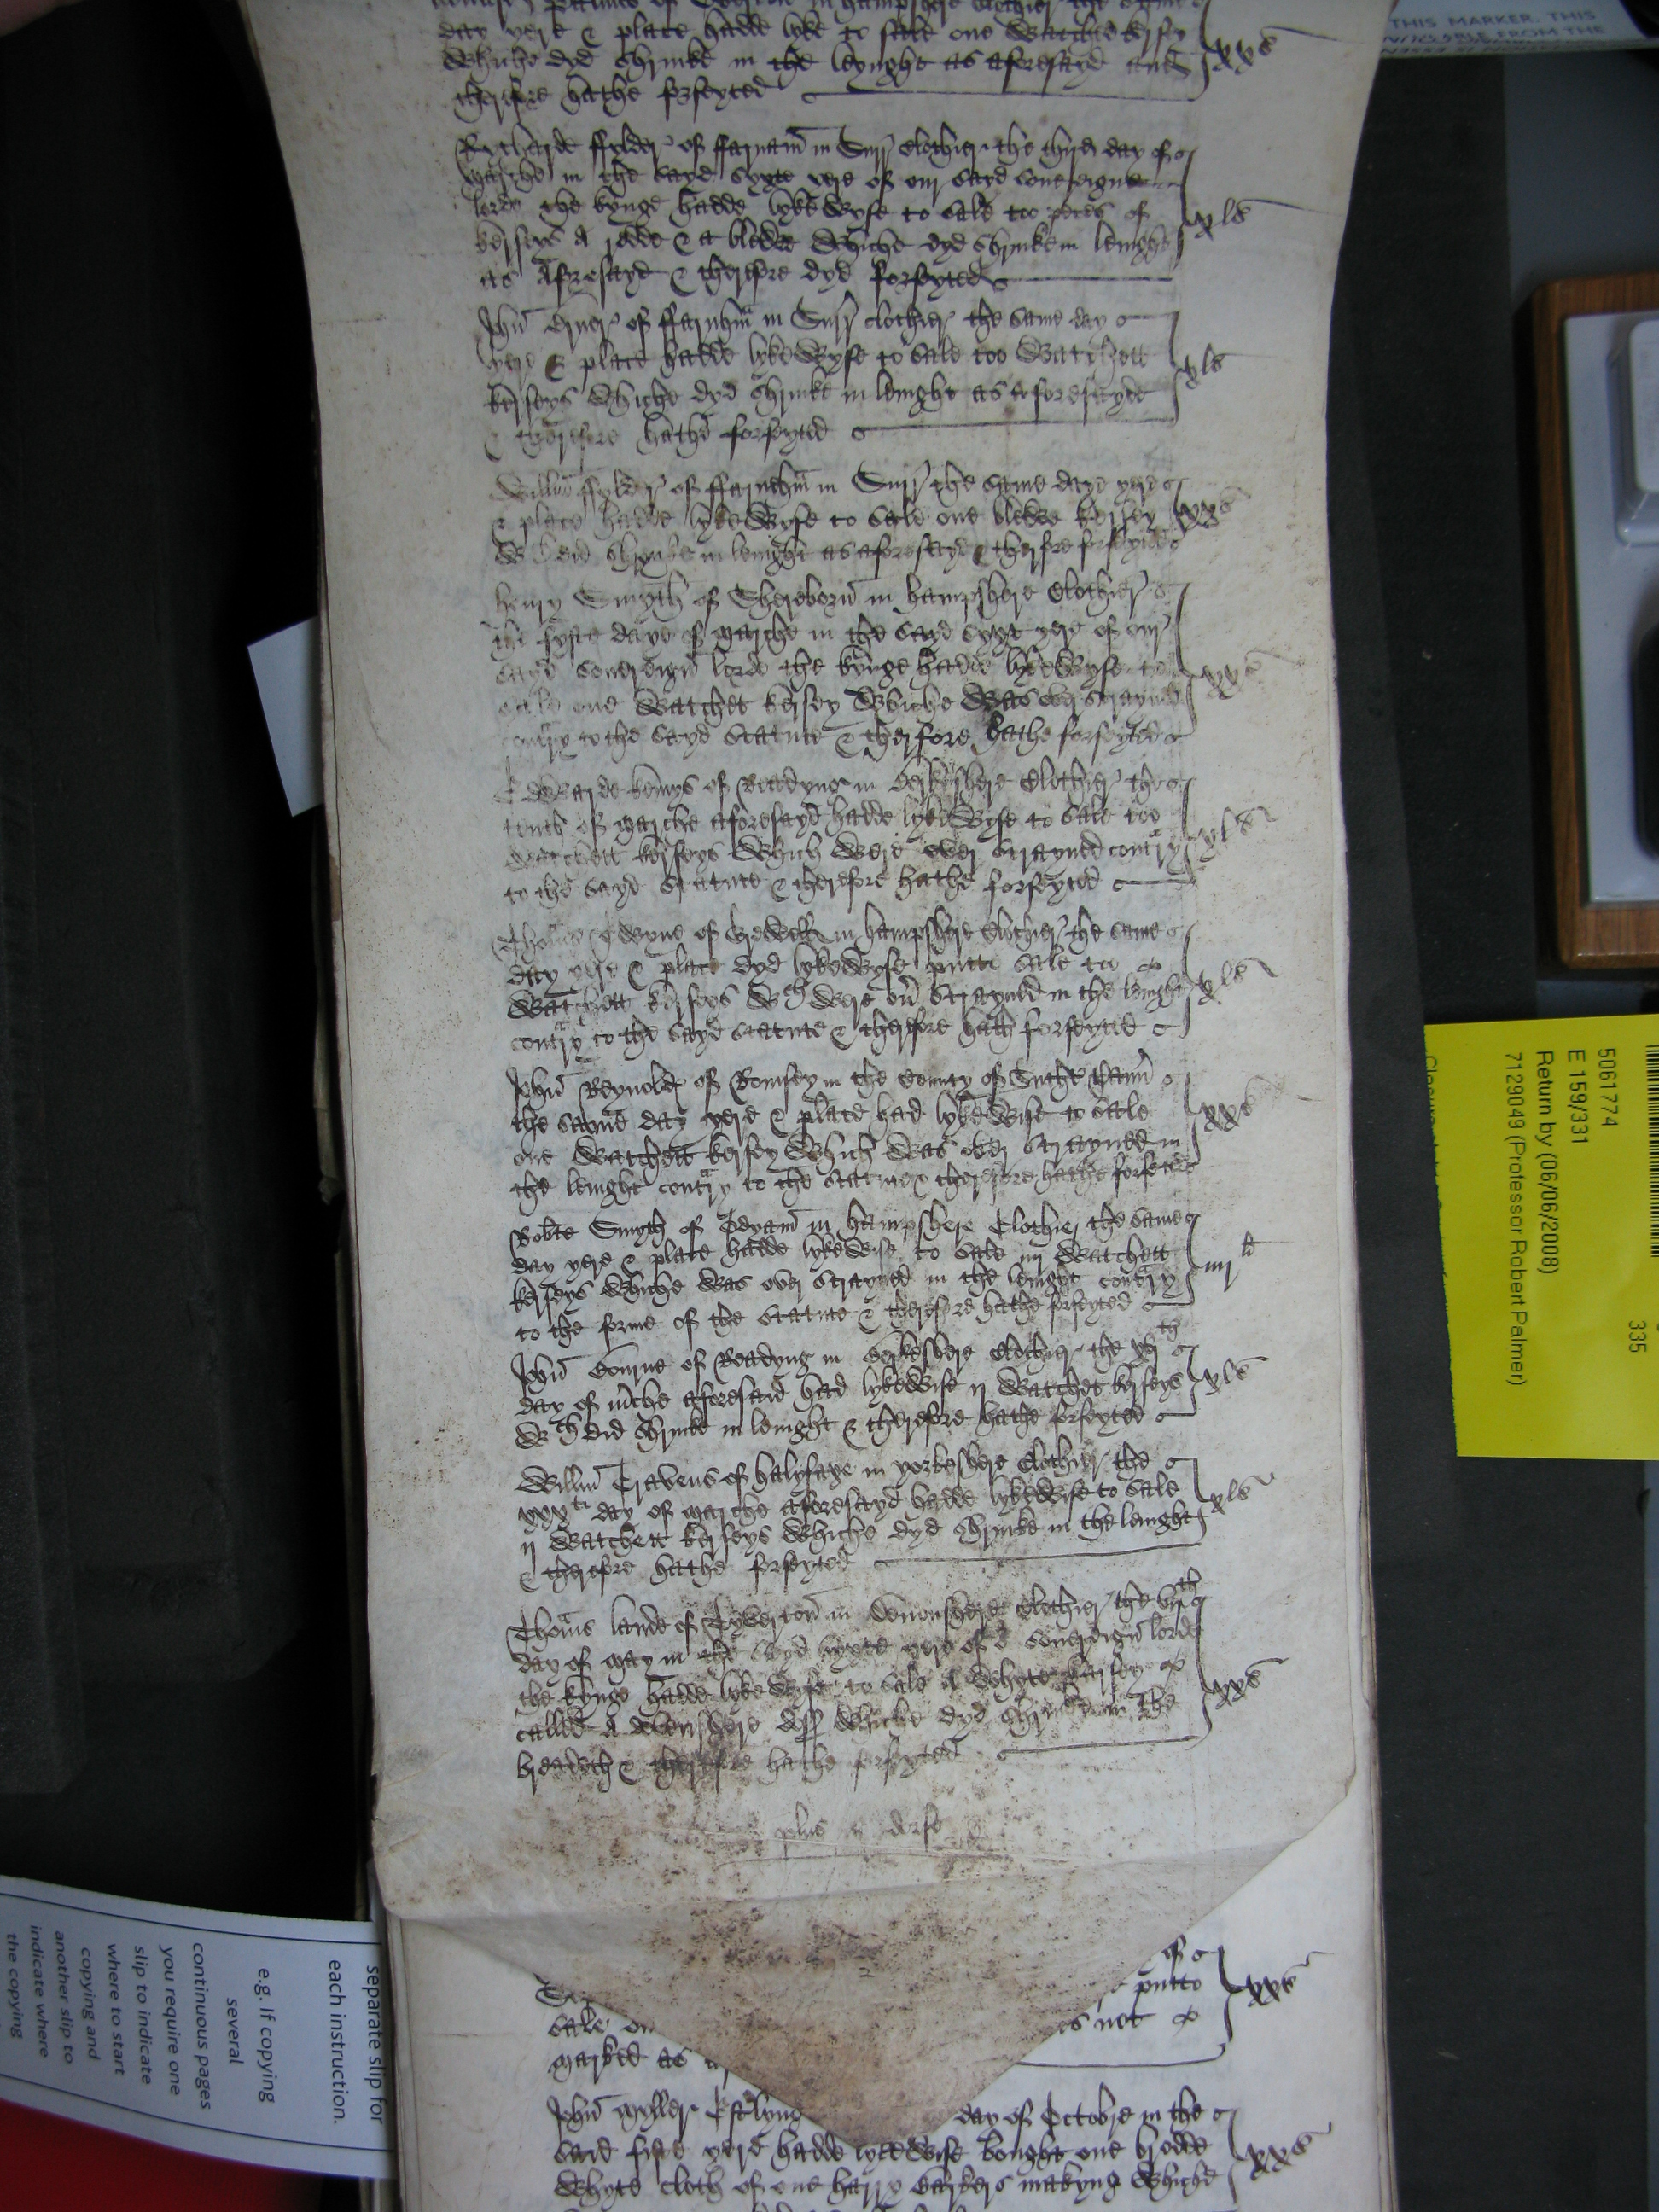 day yere & place hadde lyke to sale one Watchet kersey xxs
Whiche dyd shrinke in the lenght as aforesayd and
therfore hathe forfeyted
Rycharde ffylder of ffarnam in Surr Clothier the thyrd day of
Marche in the sayd syxte yere of our sayd sovereigne
lorde the kynge hadde lykewyse to sale too peces of xls
kerseys A redde & a blewe Whiche dyd shrinke in lenight
as Aforesayd & therfore dyd forfeyted
John of ffarnham in Surr clothier the same day
yere & place hadde lykewyse to sale too Watchett xls
kerseys Whiche dyd shrinke in lenight as aforesayde
& therfore hathe forfeyted
Willm ffylder of ffarnham in Surr the same daye yere
& place hadde lykewyse to sale one blewe kersey xxs
Wch did shrynke in lenight as aforesayd & therfore forfeyted
Henry Smyth of Shereborn in hampshere Clothier
the fyfte daye of Marche in the sayd syxt yere of our
sayd sovereign lorde the kynge hadde lykewyse to xxs
sale one Watchet kersey Whiche Was over strayned
contry to the sayd Statute & therfore hathe forfeyted
Edwarde kemys of Readyng in Berkshere Clothier the
tenth of Marche aforesayd hadde lykewyse to sale too
Watchett kerseys Which Were over strayned contry xls
to the sayd Statute & therefore hathe forfeyted
Thomas of in hampshere Clothier the same
day yere & place dyd lykewyse putto sale too
Watchett kerseys Wch Were over strayned in the lenight xls
contry to the sayd statute & therfore hath forfeyted
John Reynolds of Romsey in the County of Suthe
the same day yere & place had lykewise to sale xxs
one Watchett kersey Which Was over strayned in
the lenight contry to the statute & therefore hathe forfeted
Robte Smyth of Odyam in hampshere Clothier the same
day yere & place hadde lykewise to sale iiij Watchett iiij li
kerseys Whiche Was over strayned in the lenight contry
to the forme of the statute & therfore hathe forfeyted
John Bourne of Readyng in Berkeshere Clothier the
day of Mche aforesaid had lykewise ij Watchet kerseys xls
Wch did shrinke in lenight & therefore hathe forfeyted
Willm Cravens of halyfaxe in yorkeshere Clothier the
xxxti day of Marche aforesayd hadde lykewise to sale xls
ij Watchett kerseys Whiche dyd shrinke in the lenight
& therefore hathe forfeyted
Thomas lande of Tyverton in Devonshere Clothier the
day of May in the sayd syxte yere of o sovereign lorde
the kynge hadde lykewyse to sale A Whyte xxs
called A Devenshere Whiche dyd shrinke in the
bredeth & therefore hathe forfeyted
plus in dorso
of
putto xxs
sale is not
marked as
John Myller day of Octobre in the
said fifte yere hadde lykewise bought one brodde xxs
Whyte cloth of one harry Barkers makyng Whiche
THIS MARKER. THIS
FROM THE
335
5061774
E 159/331
Return by (06/06/2008)
7129049 (Professor Robert Palmer)
separate slip for
each instruction.
e.g. If copying
several
continuous pages
you require one
slip to indicate
where to start
copying and
another slip to
indicate where
the copying